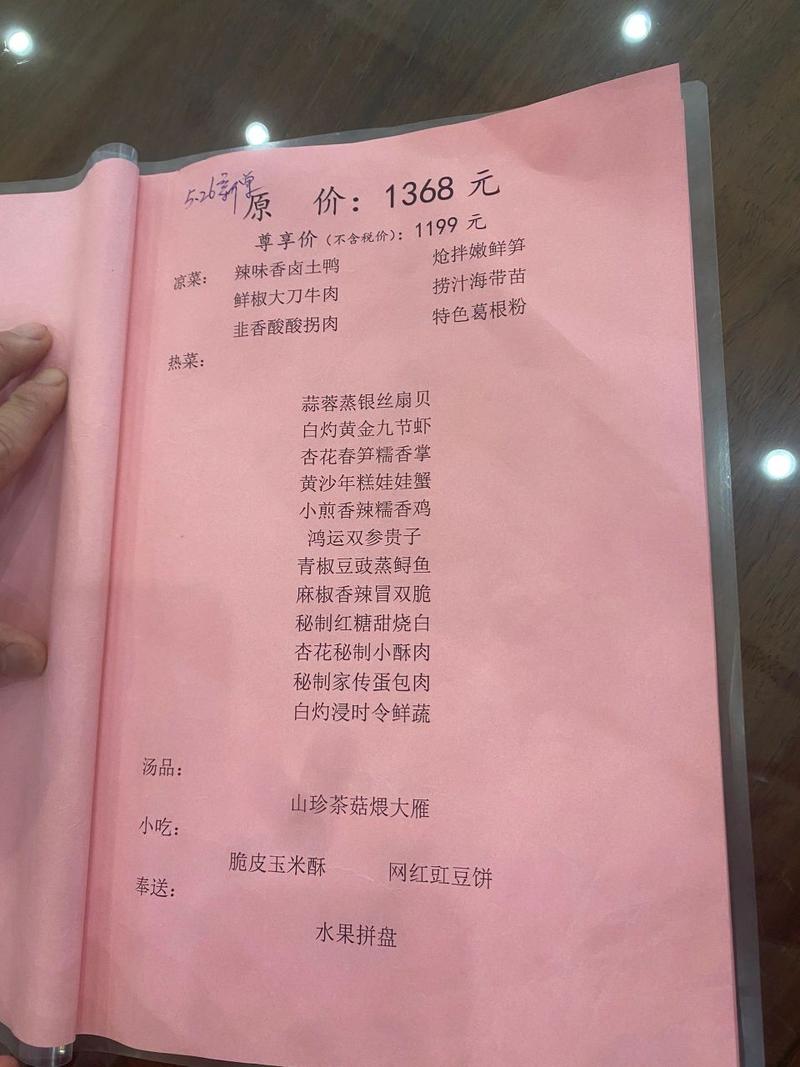 5.26新单
原 价：1368 元
尊享价（不含税价）：1199 元
凉菜： 辣味香卤土鸭 炝拌嫩鲜笋
鲜椒大刀牛肉 捞汁海带苗
韭香酸酸拐肉 特色葛根粉
热菜：
蒜蓉蒸银丝扇贝
白灼黄金九节虾
杏花春笋糯香掌
黄沙年糕娃娃蟹
小煎香辣糯香鸡
鸿运双参贵子
青椒豆豉蒸鲟鱼
麻椒香辣冒双脆
秘制红糖甜烧白
杏花秘制小酥肉
秘制家传蛋包肉
白灼浸时令鲜蔬
汤品：
山珍茶菇煨大雁
小吃：
脆皮玉米酥 网红豇豆饼
奉送：
水果拼盘